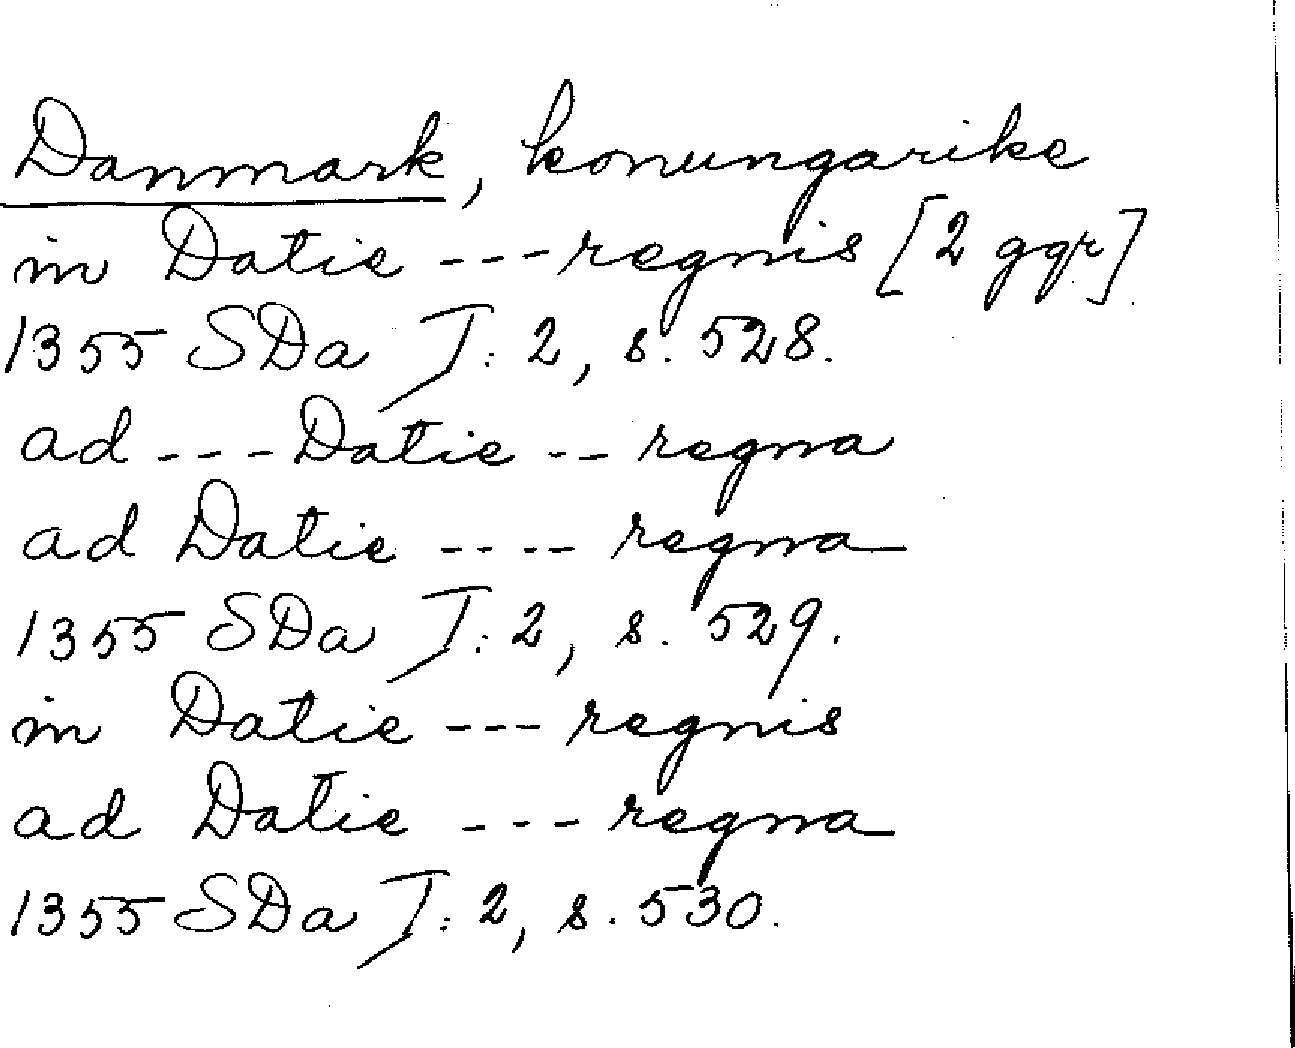 Danmark, konungarike
in Datie --- regnis [2 ggr]
1355 SDa I: 2, s. 528.
ad --- Datie -- regna
ad Datie ---- regna
1355 SDa I: 2, s. 529.
in Datie --- regnis
ad Datie --- regna
1355 SDa I: 2, s. 530.